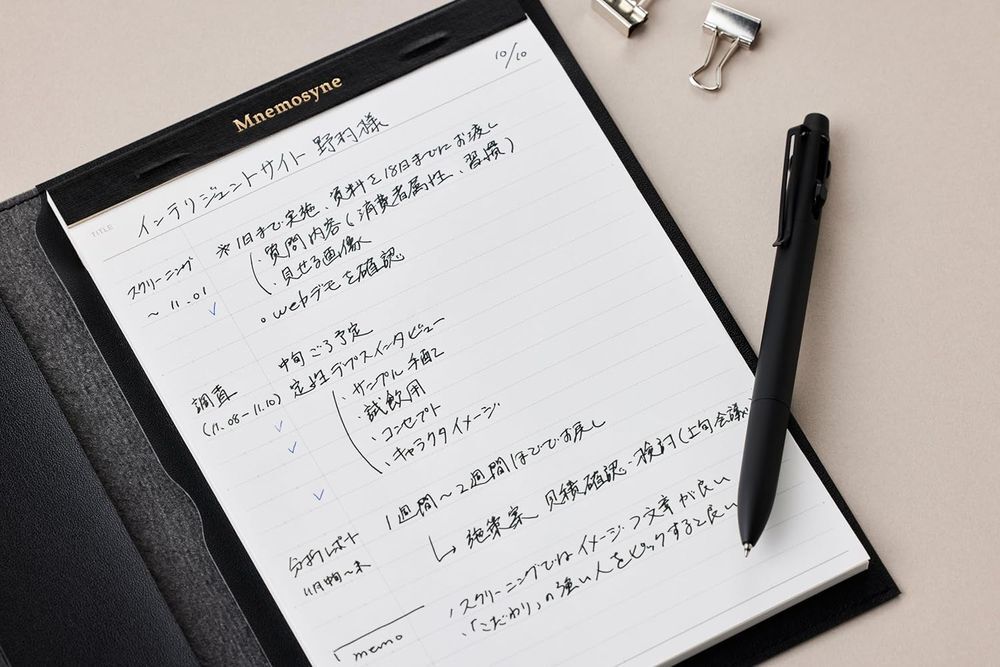 Mnemosyne
10/10
TITLE
インテリジェントサイト 野村様
※1日まで実施、資料を18日までにお渡し
・質問内容(消費者属性、習慣)
・見せる画像
スクリーニング
～11.01
○webデモを確認
中旬ごろ予定
調査
定性デプスインタビュー
(11.08-11.10)
・サンプル手配
・試飲用
・コンセプト
・キャラクタイメージ
1週間～2週間ほどでお戻し
分析レポート
11月中旬～末
↳ 施策案 見積確認・検討(上旬会議
memo
・スクリーニングではイメージつく文章が良い
・「こだわり」の強い人をピックすると良い